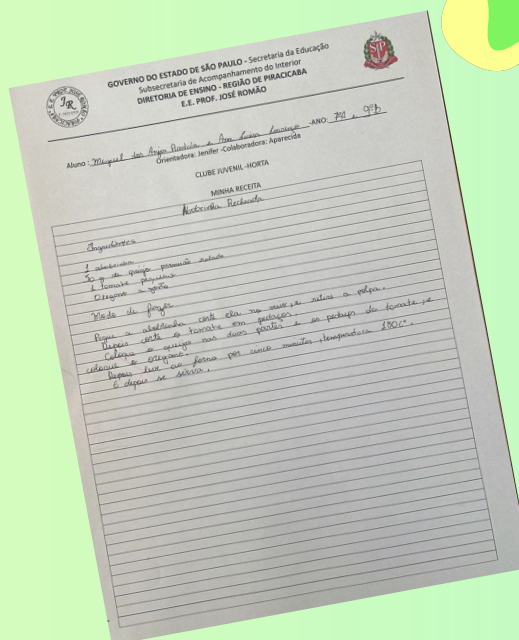 GOVERNO DO ESTADO DE SÃO PAULO - Secretaria da Educação
Subsecretaria de Acompanhamento do Interior
DIRETORIA DE ENSINO - REGIÃO DE PIRACICABA
E.E. PROF. JOSÉ ROMÃO
Aluno: Miguel dos Anjos e Ana -ANO: 7ºD e 9ºB
Orientadora: Jenifer -Colaboradora: Aparecida
CLUBE JUVENIL -HORTA
MINHA RECEITA
Abobrinha Recheada
Ingredientes
1 abobrinha
50 g de queijo parmesão ralado
1 tomate pequeno
Orégano a gosto
Modo de fazer
Pegue a abobrinha corte ela no meio, e retire a polpa.
Depois corte o tomate em pedaços.
Coloque o queijo nas duas partes e os pedaços do tomate, e
coloque o orégano.
Depois leve ao forno por cinco minutos, temperatura 180cº.
E depois se sirva.